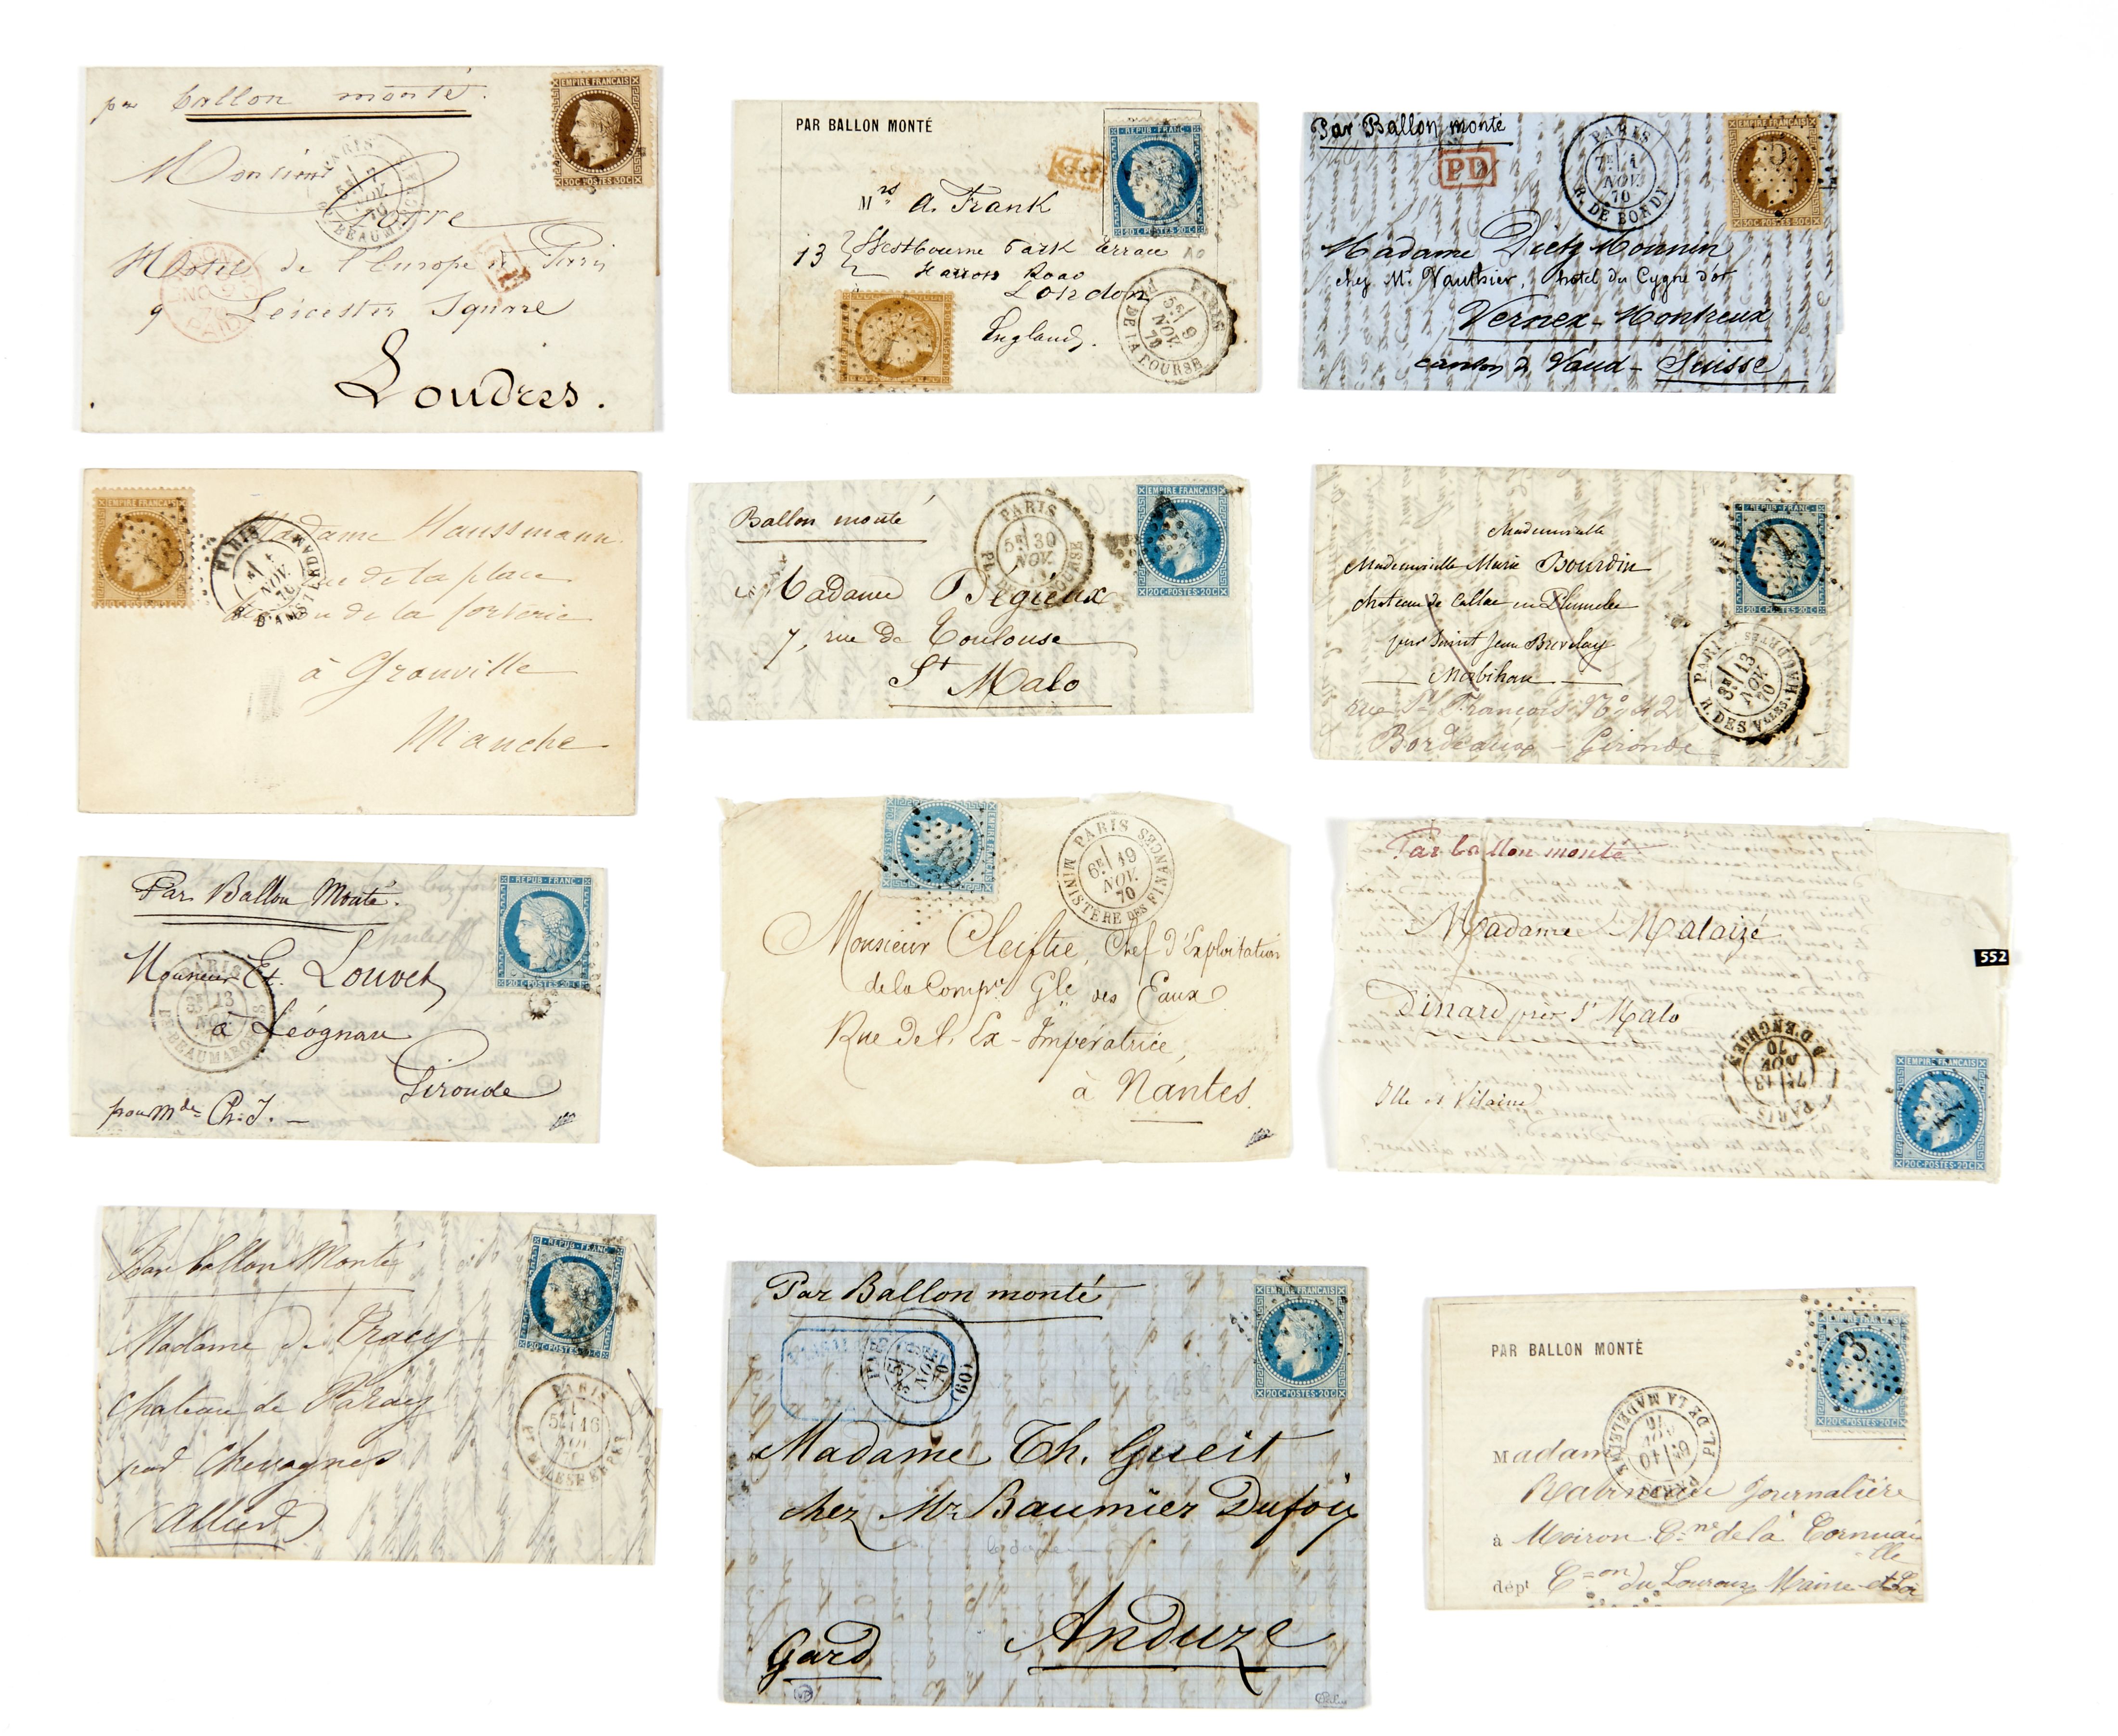 par ballon monté.
EMPIRE FRANÇAIS
30C POSTES 30C
PARIS
5E 7
NOV.
70
BD BEAUMARCHAIS
Monsieur
Hotel de l'Europe & Paris
9 Leicester Square
Londres.
PAID
PAR BALLON MONTÉ
REPUB. FRANC.
20 C. POSTES. 20 C.
PD
Mrs A. Frank
13 Westbourne Park terrace
Harrow Road
London
England.
PARIS
5E 9
NOV.
70
PL. DE LA BOURSE
Par Ballon monté
PD
PARIS
7E 1
NOV.
70
R. DE BONDY
EMPIRE FRANÇAIS
30C POSTES 30C
Madame Dietz Monnin
chez Mr. Vauthier, hotel du Cygne d'or
Vernex-Montreux
canton d Vaud - Suisse
EMPIRE FRANÇAIS
PARIS
NOV.
70
R. D'AMSTERDAM
Madame Haussmann
rue de la place
de la
à Granville
Manche
Ballon monté
PARIS
5E 30
NOV.
PL. DE LA BOURSE
EMPIRE FRANÇAIS
20C POSTES 20C
Madame Bégieux
7, rue De Toulouse
St Malo
REPUB. FRANC.
20 C. POSTES. 20 C.
Mademoiselle
Mademoiselle Marie Bourdin
chateau de Callac en Plumelec
pour Saint Jean Brevelay
Morbihan
rue St François No 42
Bordeaux - Gironde
PARIS
3E 13
NOV.
70
R. DES VLLES. HAUDRTES
Par Ballon Monté.
REPUB. FRANC.
20 C. POSTES. 20 C.
Monsieur Et. Louvet
à Léognan
Gironde
pour Mde Ch. J. -
PARIS
13
NOV.
70
BD BEAUMARCHAIS
EMPIRE FRANÇAIS
PARIS
6E 19
NOV.
70
MINISTÈRE DES FINANCES
Monsieur Cleiftie, Chef d'Exploitation
de la Compie Gle des Eaux
Rue de l'Ex-Impératrice,
à Nantes.
Par ballon monté
Madame Malaizé
Dinard près St Malo
Ille et Vilaine
PARIS
7E 13
NOV.
70
R. D'ENGHIEN
EMPIRE FRANÇAIS
20C POSTES 20C
552
Par ballon Monté
REPUB. FRANC.
20 C. POSTES. 20 C.
Madame de Tracy
Chateau de Paray
par Chevagnes
(Allier)
PARIS
5E 16
Par Ballon monté
EMPIRE FRANÇAIS
20C POSTES 20C
NOV.
70
(60)
Madame Th. Gueit
chez Mr. Baumier Dufoix
Anduze
Gard
PAR BALLON MONTÉ
EMPIRE FRANÇAIS
20C POSTES 20C
PARIS
6E 10
NOV.
70
PL. DE LA MADELEINE
Madame
Journalière
à Moiron Cne de la Cornuaille
dépt Con du Louroux Maine-et-Loire